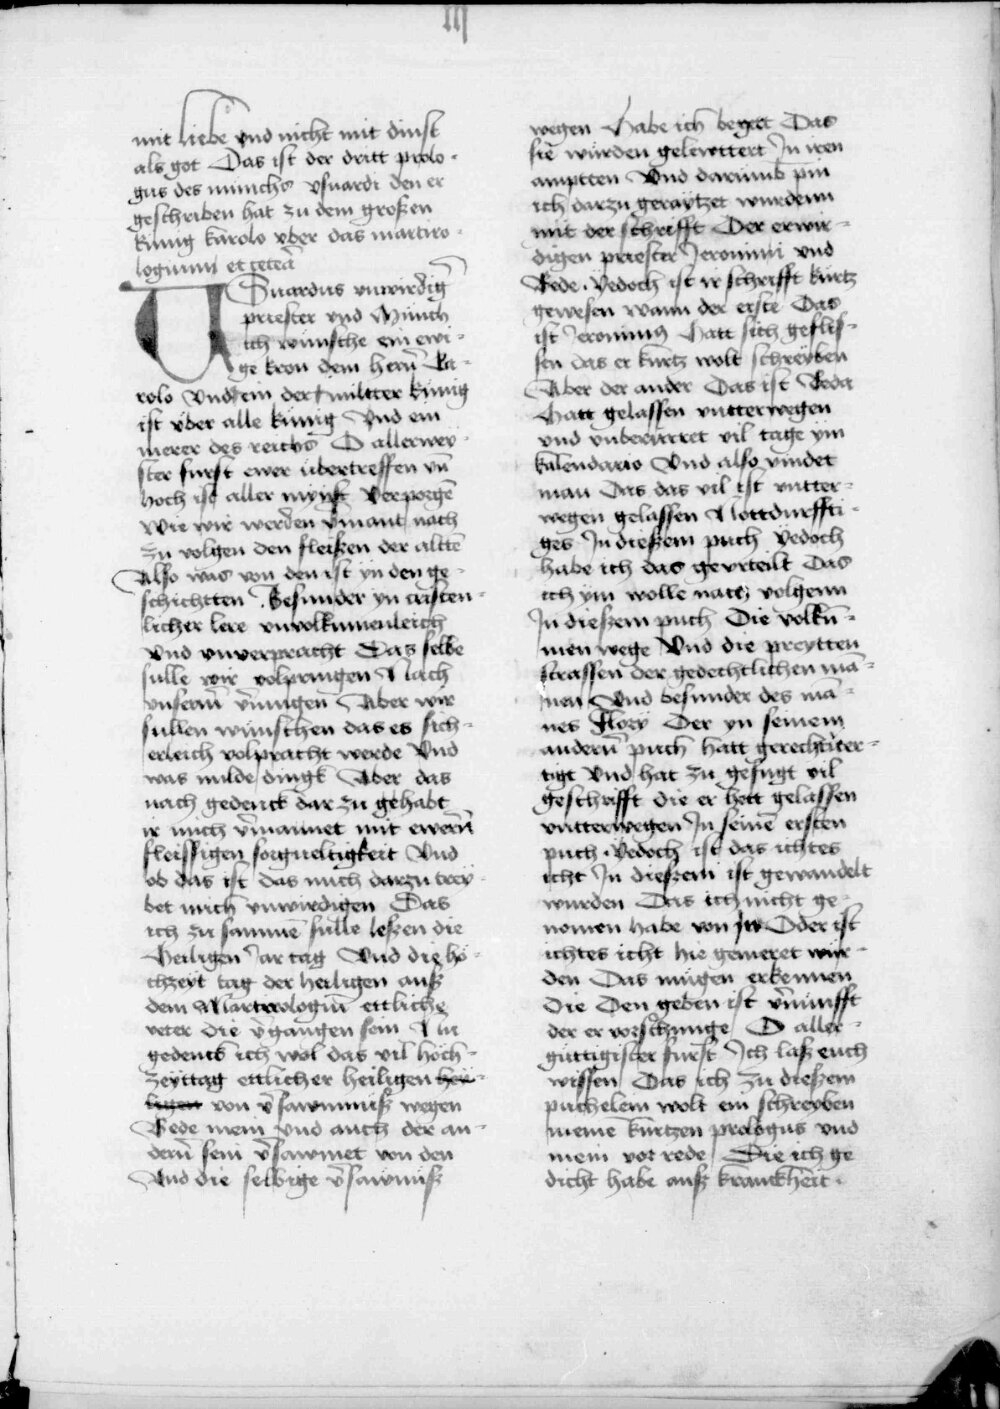 III
mit liebe vnd nicht mit dinst
als got Das ist der dritt prolo-
gus des münchs vsuardi den er
geschriben hat zu dem großen
künig karolo vber das martiro-
logiumm et cetera
VSuardus vnwirdig̃
priester vnd Münch
ich wunsche ein ewi-
ge kron dem herñ Ka-
rolo Vnd ein der miltter künig
ist vber alle künig Vnd ein
merer des reichs O allerwey-
ster furst ewer übertreffen vñ
hoch ist aller Verporgẽ
Wie wir werden v̓mant nach
zu volgen den fleißen der altẽ
Also was von den ist yn den ge-
schichtten Besunder yn cristen-
licher lere vnvolkumenleich
Vnd vnverpracht Das selbe
sülle wir volpringen Nach
vnserñ v̓mügen Aber wir
süllen wünschen das es sich-
erleich volpracht werde Vnd
was milde dingk Aber das
nach gedenck dar zu gehabt
ir mich v̓mannet mit ewerñ
fleissigen sorgueltigkeit Vnd
ob das ist das mich darzu trey-
bet mich vnwirdigen Das
ich zu samnẽ sülle leßen die
Heiligen Jar tag Vnd die ho-
chzeyt tag der heiligen auß
dem Marterologiũ ettliche
veter die v̓gangen sein Nu
gedenck ich wol das vil hoch-
zeyttag ettlicher heiligen hey-
ligen von v̓sawmnüß wegen
Bede mein vnd auch der an-
derñ sein v̓sawmet von den
Vnd die selbige v̓sawmüß
wegen Habe ich begert Das
sie würden gelewttert In iren
amptten Vnd darümb pin
ich darzu geraytzet wurdenn
mit der schrifft Der erwir-
digen priester Jeronimi vnd
Bede. Yedoch ist ir schrifft kürtz
gewesen wann der erste Das
ist Jeronimus Hatt sich gefliß-
sen das er kurtz wolt schreyben
Aber der ander Das ist Beda
Hatt gelassen vntterwegen
vnd vnberürret vil tage ym
kalendario Vnd also vindet
man Das das vil ist vntter-
wegen gelassen Nottdurffti-
ges In dießem puch Yedoch
habe ich das gevrteilt Das
ich ym wolle nach volgenn
In dießem puch Die volku-
men wege Vnd die preytten
strassen der gedechtlichen mã-
nen Vnd besunder des mã-
nes Flory Der yn seinem
anderñ puch hatt gerechtuer-
tigt Vnd hat zu gefugt vil
geschrifft die er hett gelassen
vntterwegen In seinẽ ersten
puch. Yedoch ist das ichtes
icht In dießem ist gewandelt
wurden Das ich nicht ge-
nomen habe von Jn Oder ist
ichtes icht hie gemeret wur-
den Das mügen erkennen
Die Den geben ist v̓nünfft
der er vorschunge O aller-
güttigister fürst Ich laß euch
wissen Das ich zu dießem
puchelein wolt ein schreyben
meine kurtzen prologus vnd
mein vor rede Die ich ge
dicht habe auß kranckheit.